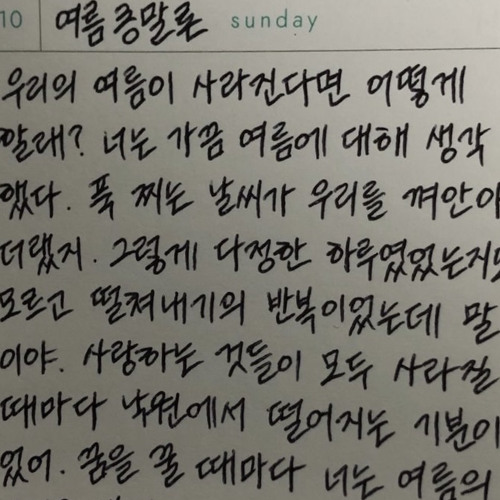 10 여름 종말론 sunday
우리의 여름이 사라진다면 어떻게
할래? 너는 가끔 여름에 대해 생각
했다. 푹 찌는 날씨가 우리를 껴안아
더랬지. 그렇게 다정한 하루였었는지도
모르고 떨쳐내기의 반복이었는데 말
이야. 사랑하는 것들이 모두 사라질
때마다 낙원에서 떨어지는 기분이
었어. 꿈을 꿀 때마다 너는 여름의